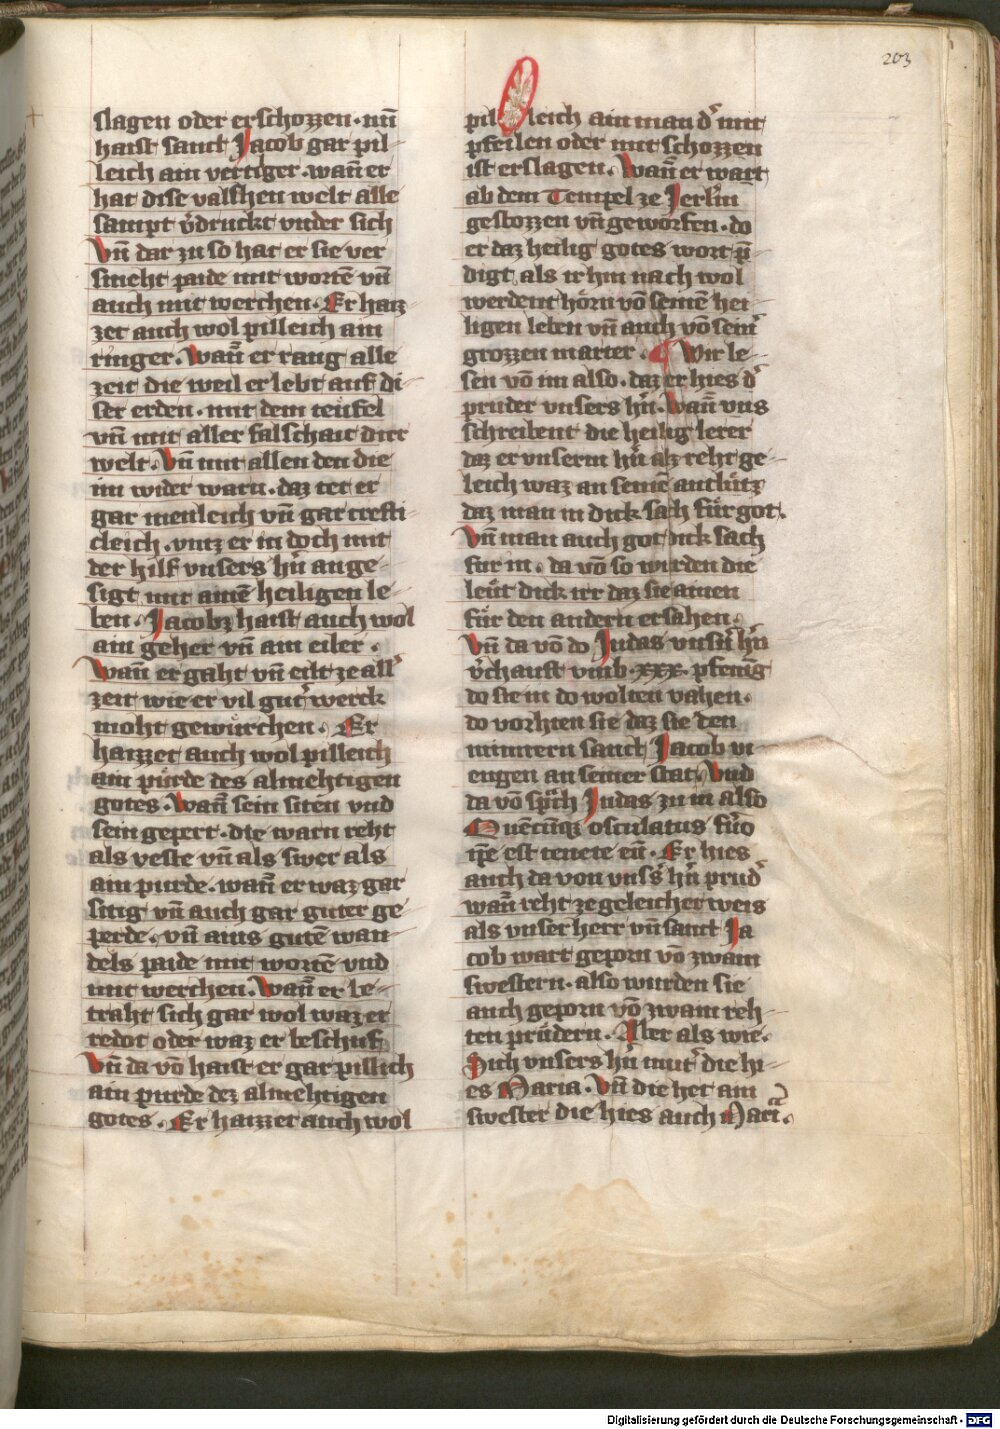 203
slagen oder erschozzen. nu̅
haist sanct Jacob gar pil
leich ain vertiger. wan̅ er
hat dise valschen welt alle
sampt v̓druckt vnder sich
Vn̅ dar zu so hat er sie ver
smeht paide mit worte̅ vn̅
auch mit werchen. Er haiz
zet auch wol pilleich ain
ringer. Wan̅ er rang alle
zeit die weil er lebt auf di
ser erden. mit dem teufel
vn̅ mit aller falschait dirr
welt. Vn̅ mit allen den die
im wider warn. daz tet er
gar menleich vn̅ gar crefti
cleich. vntz er in doch mit
der hilf vnsers hn̓ ange
sigt mit aine̅ heiligen le
ben. Jacobz haist auch wol
ain geher vn̅ ain eiler.
Wan̅ er gaht vn̅ eilt ze all̓
zeit wie er vil gut̓ werck
moht gewurchen. Er
haizzet auch wol pilleich
ain purde des almehtigen
gotes. Wan̅ sein siten vnd
sein gepert. die warn reht
als veste vn̅ als swer als
ain purde. wan̅ er waz gar
sitig vn̅ auch gar guter ge
perde. vn̅ ains gute̅ wan
dels paide mit worte̅ vnd
mit werchen. Wan̅ er be
traht sich gar wol waz er
redot oder waz er beschuf
Vn̅ da vo̅ haist er gar pillich
ain purde dez almehtigen
gotes. Er haizzet auch wol
pil leich ain man d̓ mit
pfeilen oder mit schozzen
ist erslagen. Wan̅ er wart
ab dem Tempel ze Jerl̓m
gestozzen vn̅ geworfen. do
er daz heilig gotes wort p̅
digt als ir hin nach wol
werdent hörn vo̅ seine̅ hei
ligen leben vn̅ auch vo̅ sein̓
grozzen marter. Wir le
sen vo̅ im also. daz er hies d̓
pruder vnsers hn̓. Wan̅ vns
schreibent die heilig lerer
daz er vnserm hn̓ alz reht ge
leich waz an seine̅ antlütz
daz man in dick sach für got.
Vn̅ man auch got dick sach
für in. da vo̅ so wurden die
leüt dick irr daz sie ainen
für den andern ersahen.
Vn̅ da vo̅ do Judas vnsn̓ hn̓
v̓chauft vmb .xxx. pfenig
do sie in do wolten vahen.
do vorhten sie daz sie den
minnern sanct Jacob vi
engen an seiner stat. Vnd
da vo̅ sprach Judas zu in also
Que̅cu̅q₃ osculatus fu̓o
ip̅e est tenete eu̅. Er hies
auch da von vnss̓ hn̓ prud̓
wan̅ reht ze geleicher weis
als vnser herr vn̅ sanct Ja
cob wart geporn vo̅ zwain
swestern. also wurden sie
auch geporn vo̅ zwain reh
ten prüdern. Aber als wie.
Sich vnsers hn̓ mut̓ die hi
es Maria. Vn̅ die het ain
swester die hies auch Mari̓a.
Digitalisierung gefördert durch die Deutsche Forschungsgemeinschaft - DFG